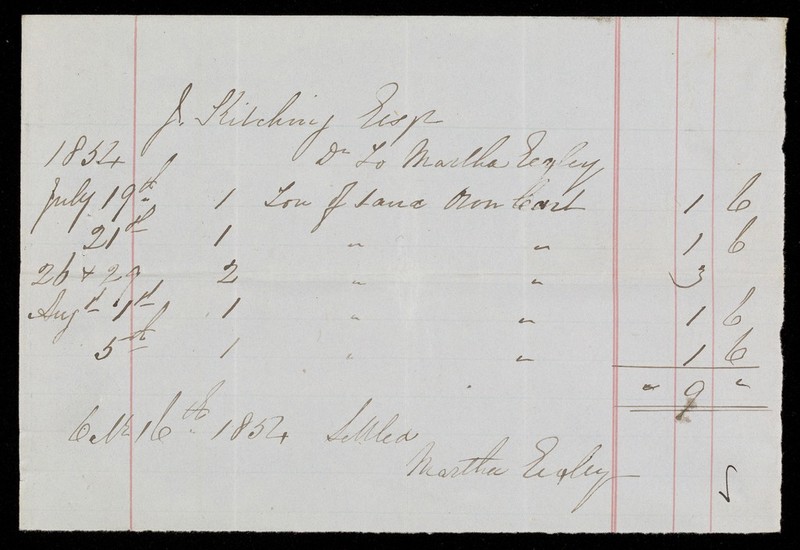 J. Kitching Esqr
1854 Dr To Martha Eegley
July 19th 1 Ton of sand own Cart 1 6
21st 1 " " 1 6
26 & 29 2 " " 3
Augst 1st 1 " " 1 6
5th 1 " " 1 6
" 9 "
16th 1854 Settled
Martha Eegley